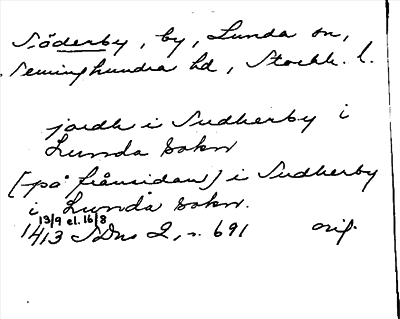 Söderby, by, Lunda sn,
Seminghundra hd, Stockh. l.
jordh i Sudherby i
Lunda sokn
[på frånsidan] i Sudherby
i Lunda sokn.
13/9 el. 16/8
1413 SDns 2, s. 691 orig.